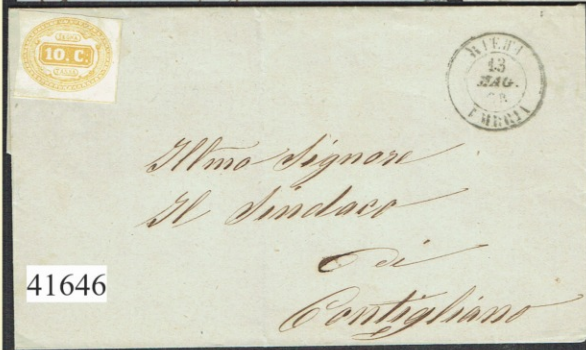 10. C.
RIETI
13
MAG.
UMBRIA
Illmo Signore
Il Sindaco
di
Contigliano
41646